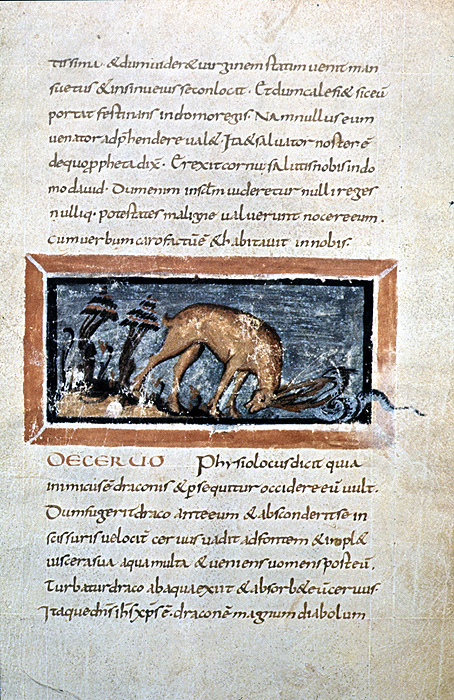 tissima · & dum uider& uirginem statim uenit man
suetus & insinu eius se conlocat · Et dum calefi& sic eū
portat festinans in domo regis · Nam nullus eum
uenator adp̄hendere ual& · Ita & saluator noster ē
de quo ꝓpheta dix̄ · Erexit cornu salutis nobis in do
mo dauid · Dum enim in sc̄lm uideretur nulli reges
nulliq· potestates maligne ualuerunt nocere eum ·
Cum uerbum caro factū ē & habitauit in nobis ·
DE CERUO Physiolocus dicit quia
inimicus ē draconis & p̄sequitur occidere eū uult ·
Dum fugerit draco ante eum & absconderit se in
scissuris uelocit̄ ceruus uadit ad fontem & impl&
uiscera sua aqua multa & ueniens uomens post eū ·
Turbatur draco ab aqua exiit & absorb& eū ceruus ·
Itaque dn̄s ih̄s xp̄s ē draconē magnum diabolum